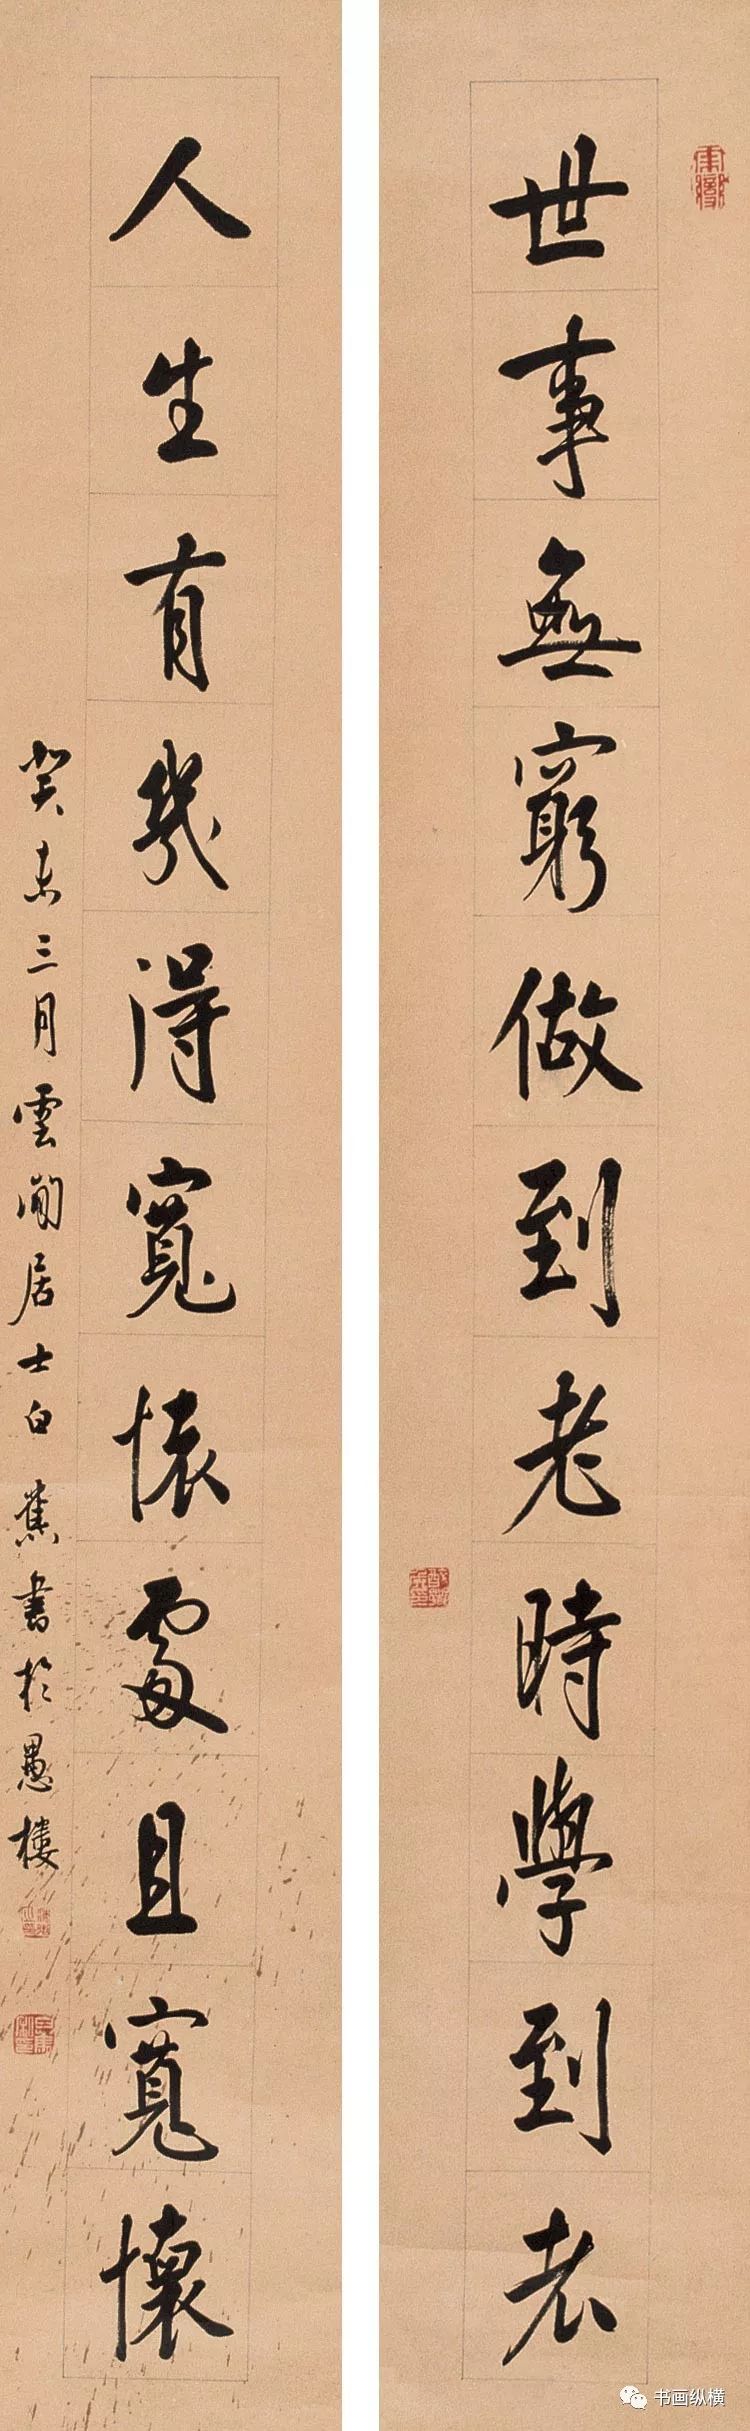 世事無窮做到老時學到老
人生有幾得寬懷處且寬懷
癸未三月雲間居士白蕉書於愚樓
书画纵横